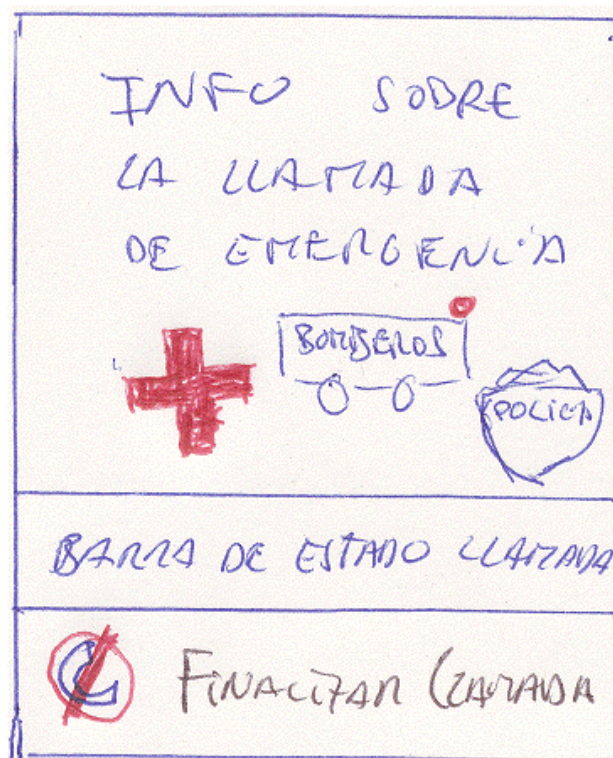 INFO SOBRE
LA LLAMADA
DE EMERGENCIA
BOMBEROS
POLICIA
BARRA DE ESTADO LLAMADA
FINALIZAR LLAMADA